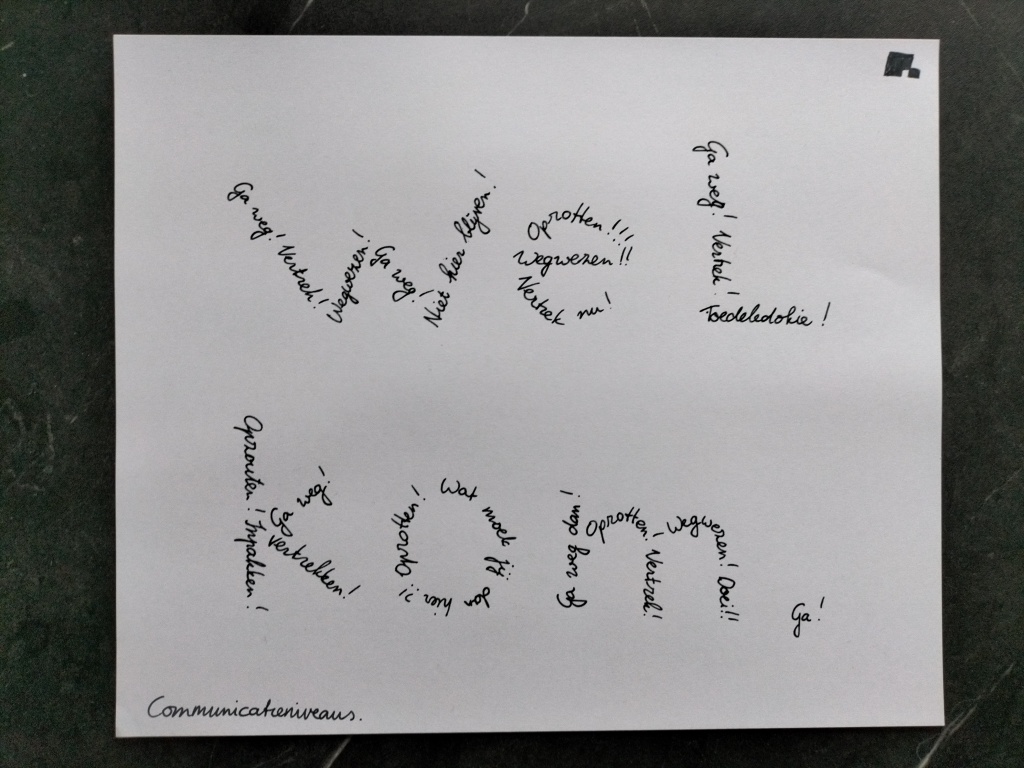 Ga weg! Vertrek!
Wegwezen!
Ga weg!
Niet hier blijven!
Oprotten!!!
Wegwezen!!
Vertrek nu!
Ga weg! Vertrek!
Toedeledokie!
Oprouten! Inpakken!
Ga weg!
vertrekken!
Wat moet jij dan hier?!
Oprotten!
Ga weg dom!
Oprotten! Vertrek!
Wegwezen! Doei!!
Ga!
Communicatieniveaus.